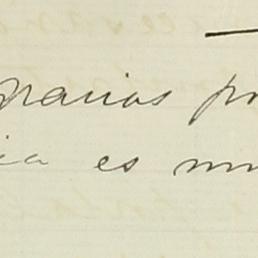 gracias po
ia es mu